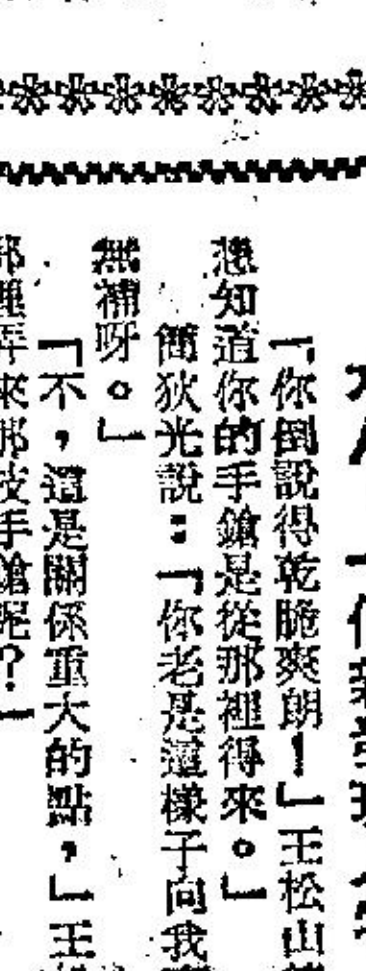 「你倒說得乾脆爽朗！」王松山
想知道你的手鎗是從那裡得來。」
簡狄光說：「你老是這樣子向我
無補呀。」
「不，這是關係重大的點，」王
那裡弄來那枝手鎗呢？」